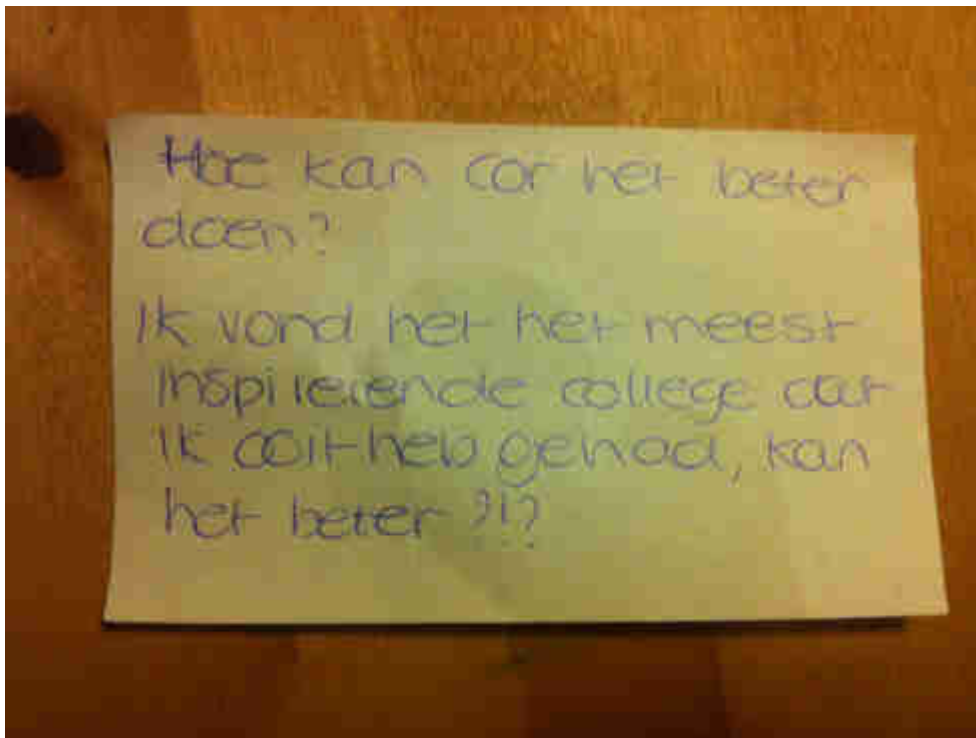 Hoe kan Cor het beter
doen?
Ik vond het het meest
inspirerende college dat
ik ooit heb gehad, kan
het beter?!?